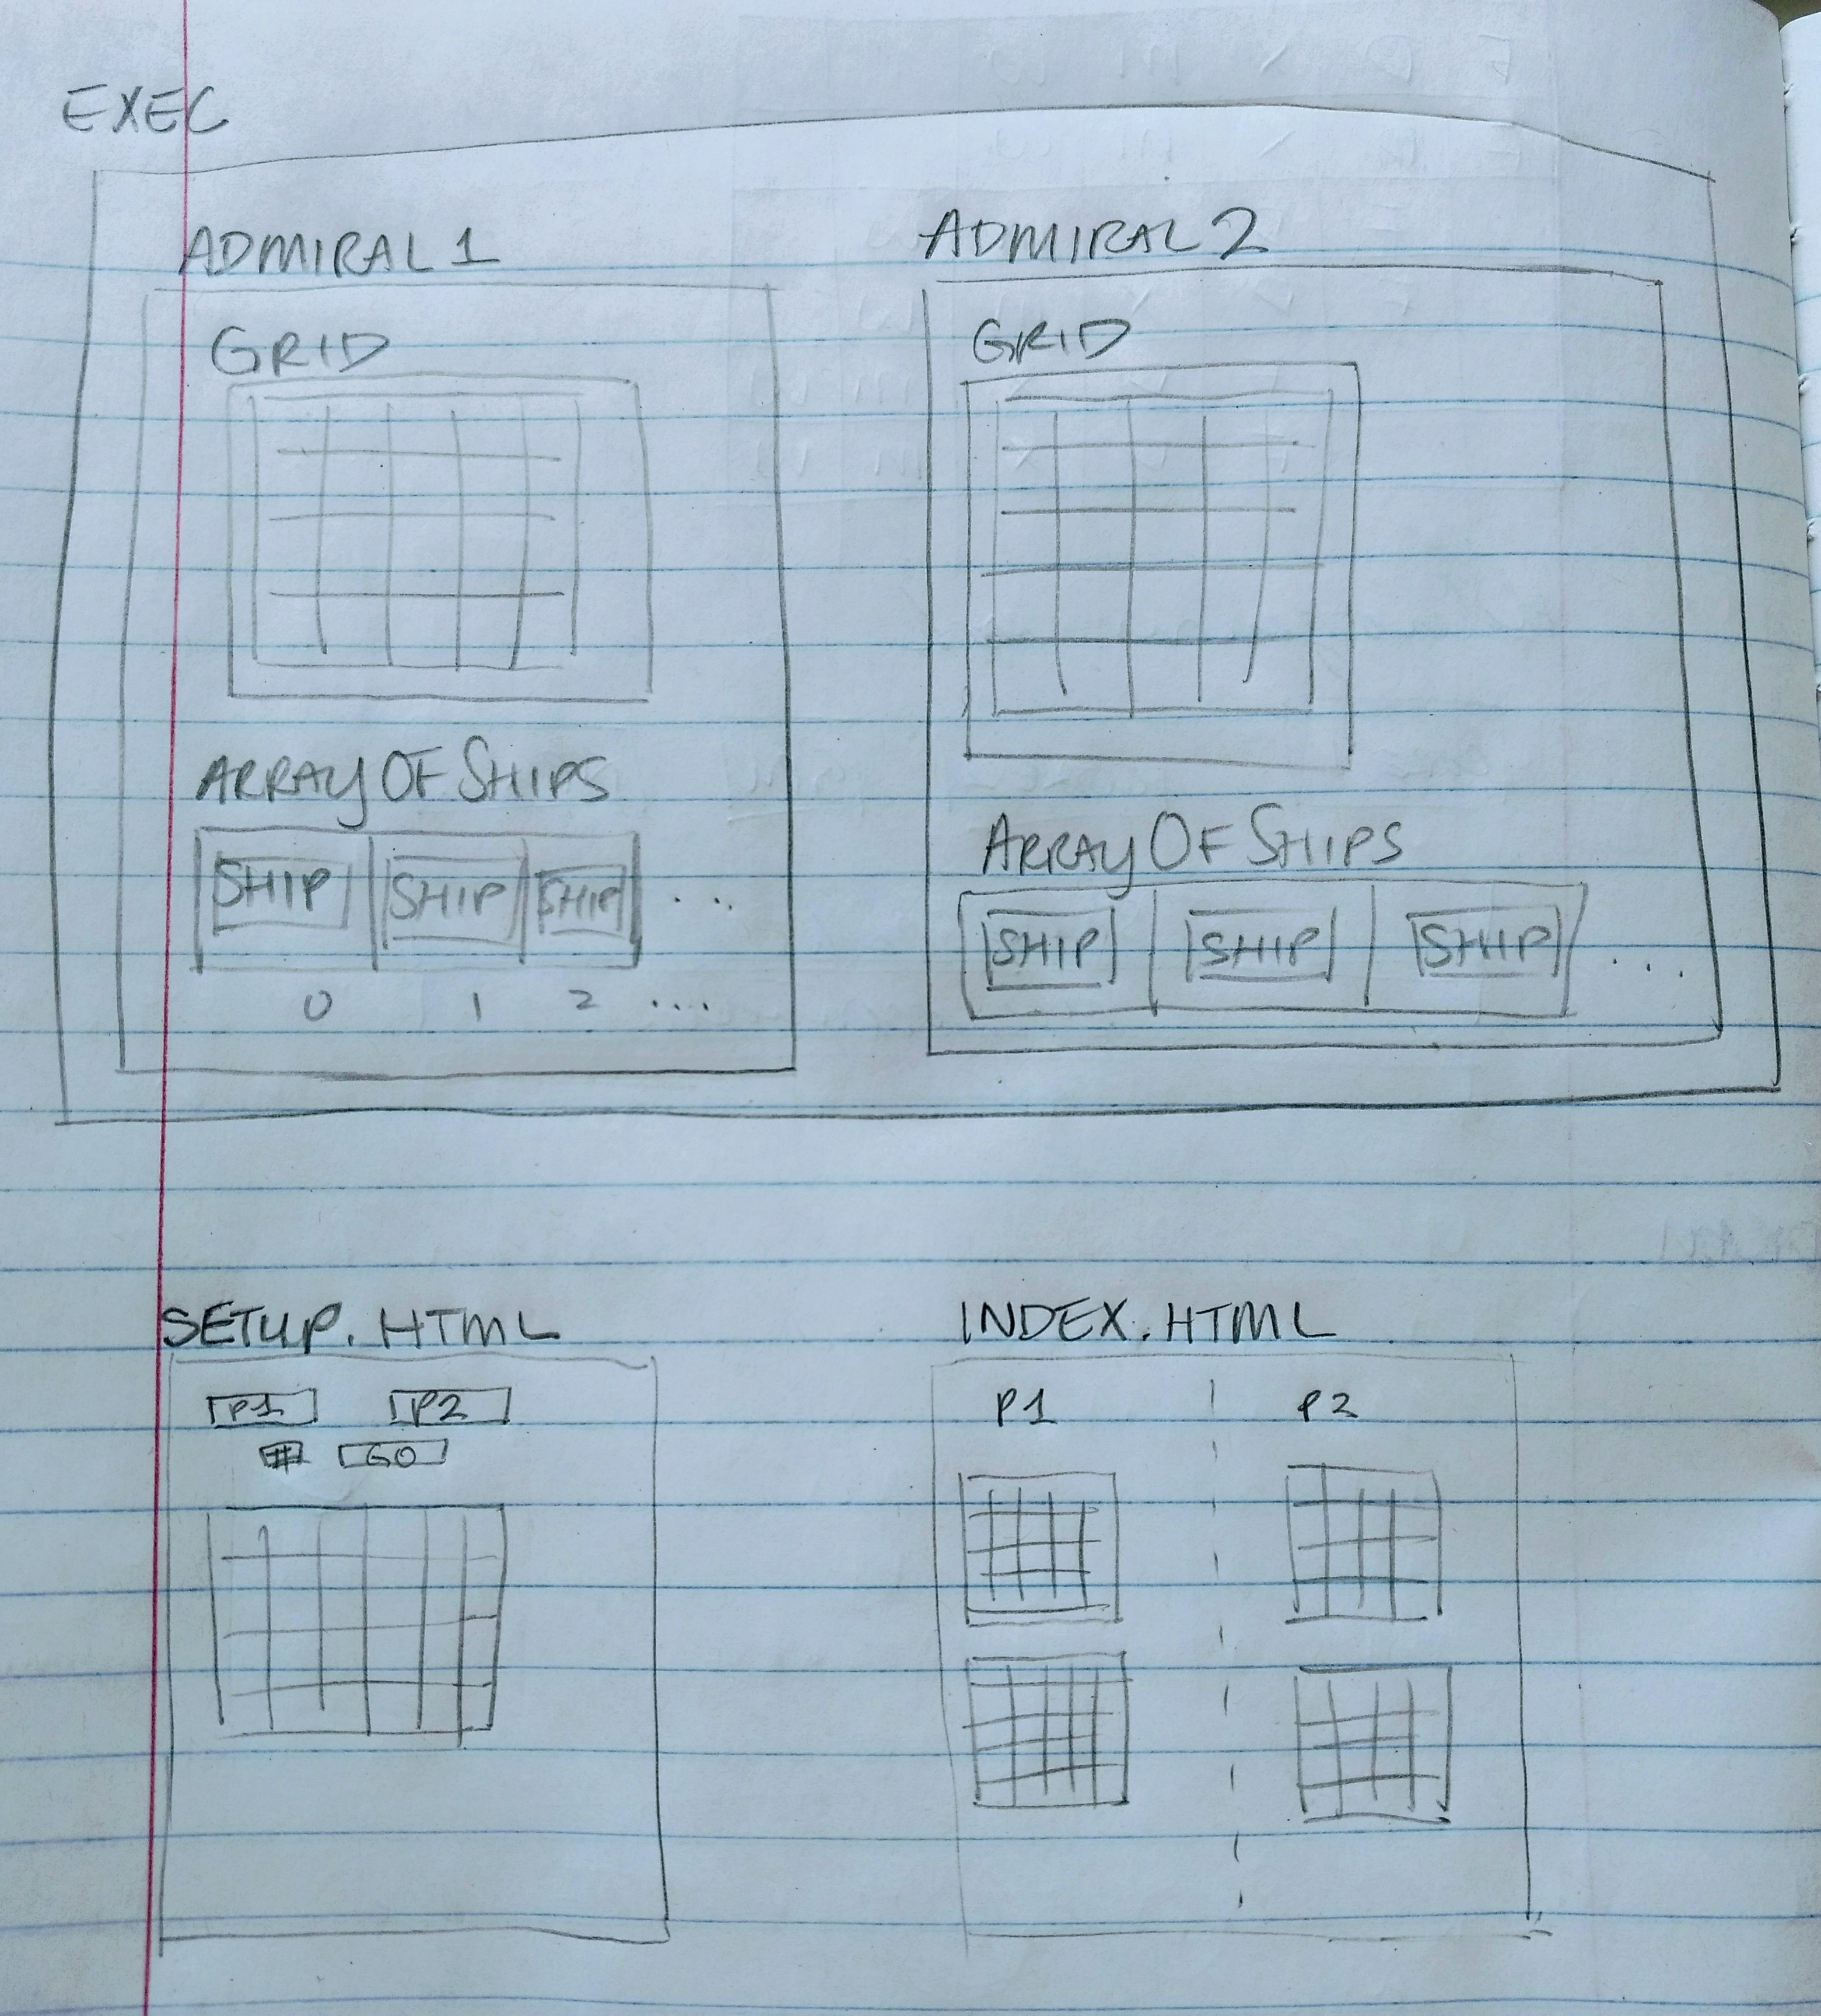 EXEC
ADMIRAL 1
GRID
ARRAY OF SHIPS
SHIP SHIP SHIP ...
0 1 2 ...
ADMIRAL 2
GRID
ARRAY OF SHIPS
SHIP SHIP SHIP ...
SETUP.HTML
P1 P2
# GO
INDEX.HTML
P1 P2